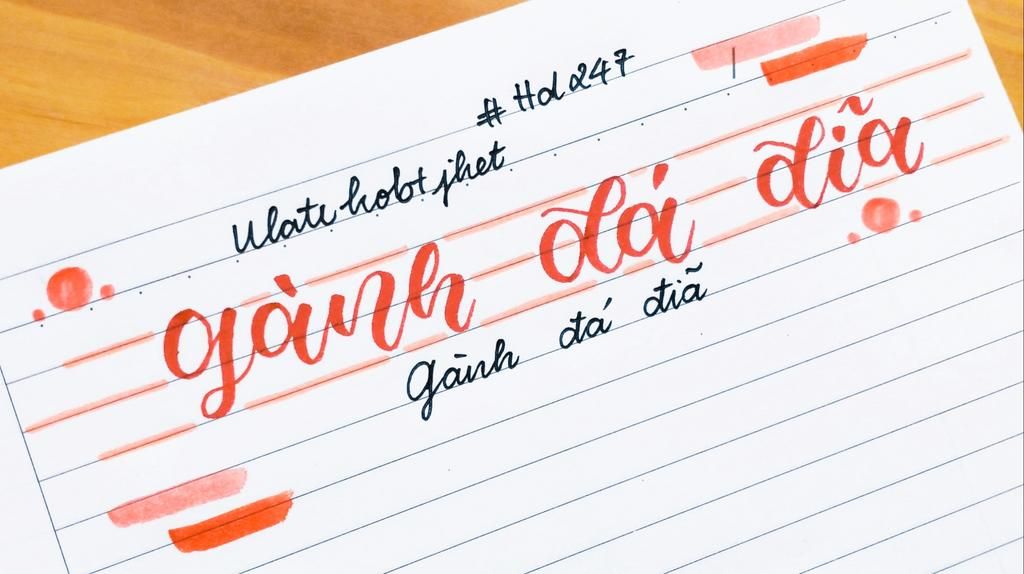 #Hd247
Ulatr kobt jhet
gành đá đĩa
Gành đá điã